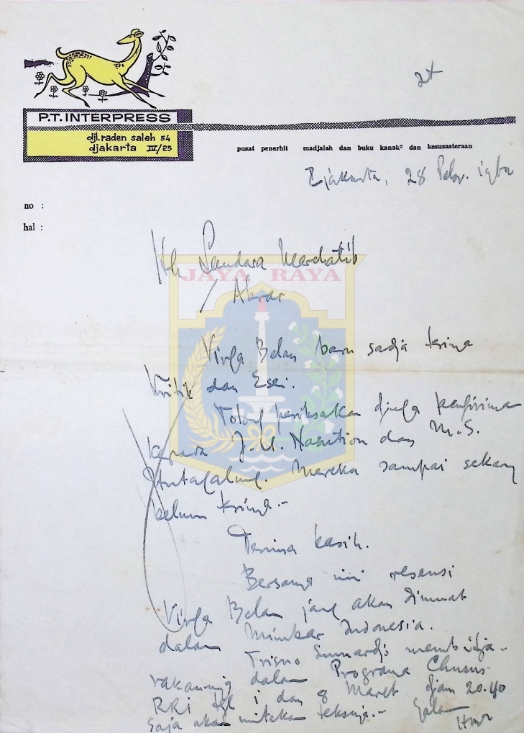 24
P.T. INTERPRESS
djl. raden saleh 54
djakarta IV/25
pusat penerbit madjalah dan buku kanak² dan kesusasteraan
Djakarta, 28 Febr. 1962
no :
hal :
Saudara
JAYA RAYA
/ Abrar
Virga Belan baru sadja terima
Kritik dan Esei.
Tolong periksakan djuga pengiriman
kepada J.U. Nasution dan M.S.
Hutagalung. Mereka sampai sekarang
belum terima.-
Terima kasih.
Bersama ini resensi
Virga Belan jang akan dimuat
dalam Mimbar Indonesia.
Trisno Sumardjo membitja-
rakannja dalam Programa Chusus
RRI tgl 1 dan 8 Maret djam 20.40
Saja akan mintakan teksnja.- Salam